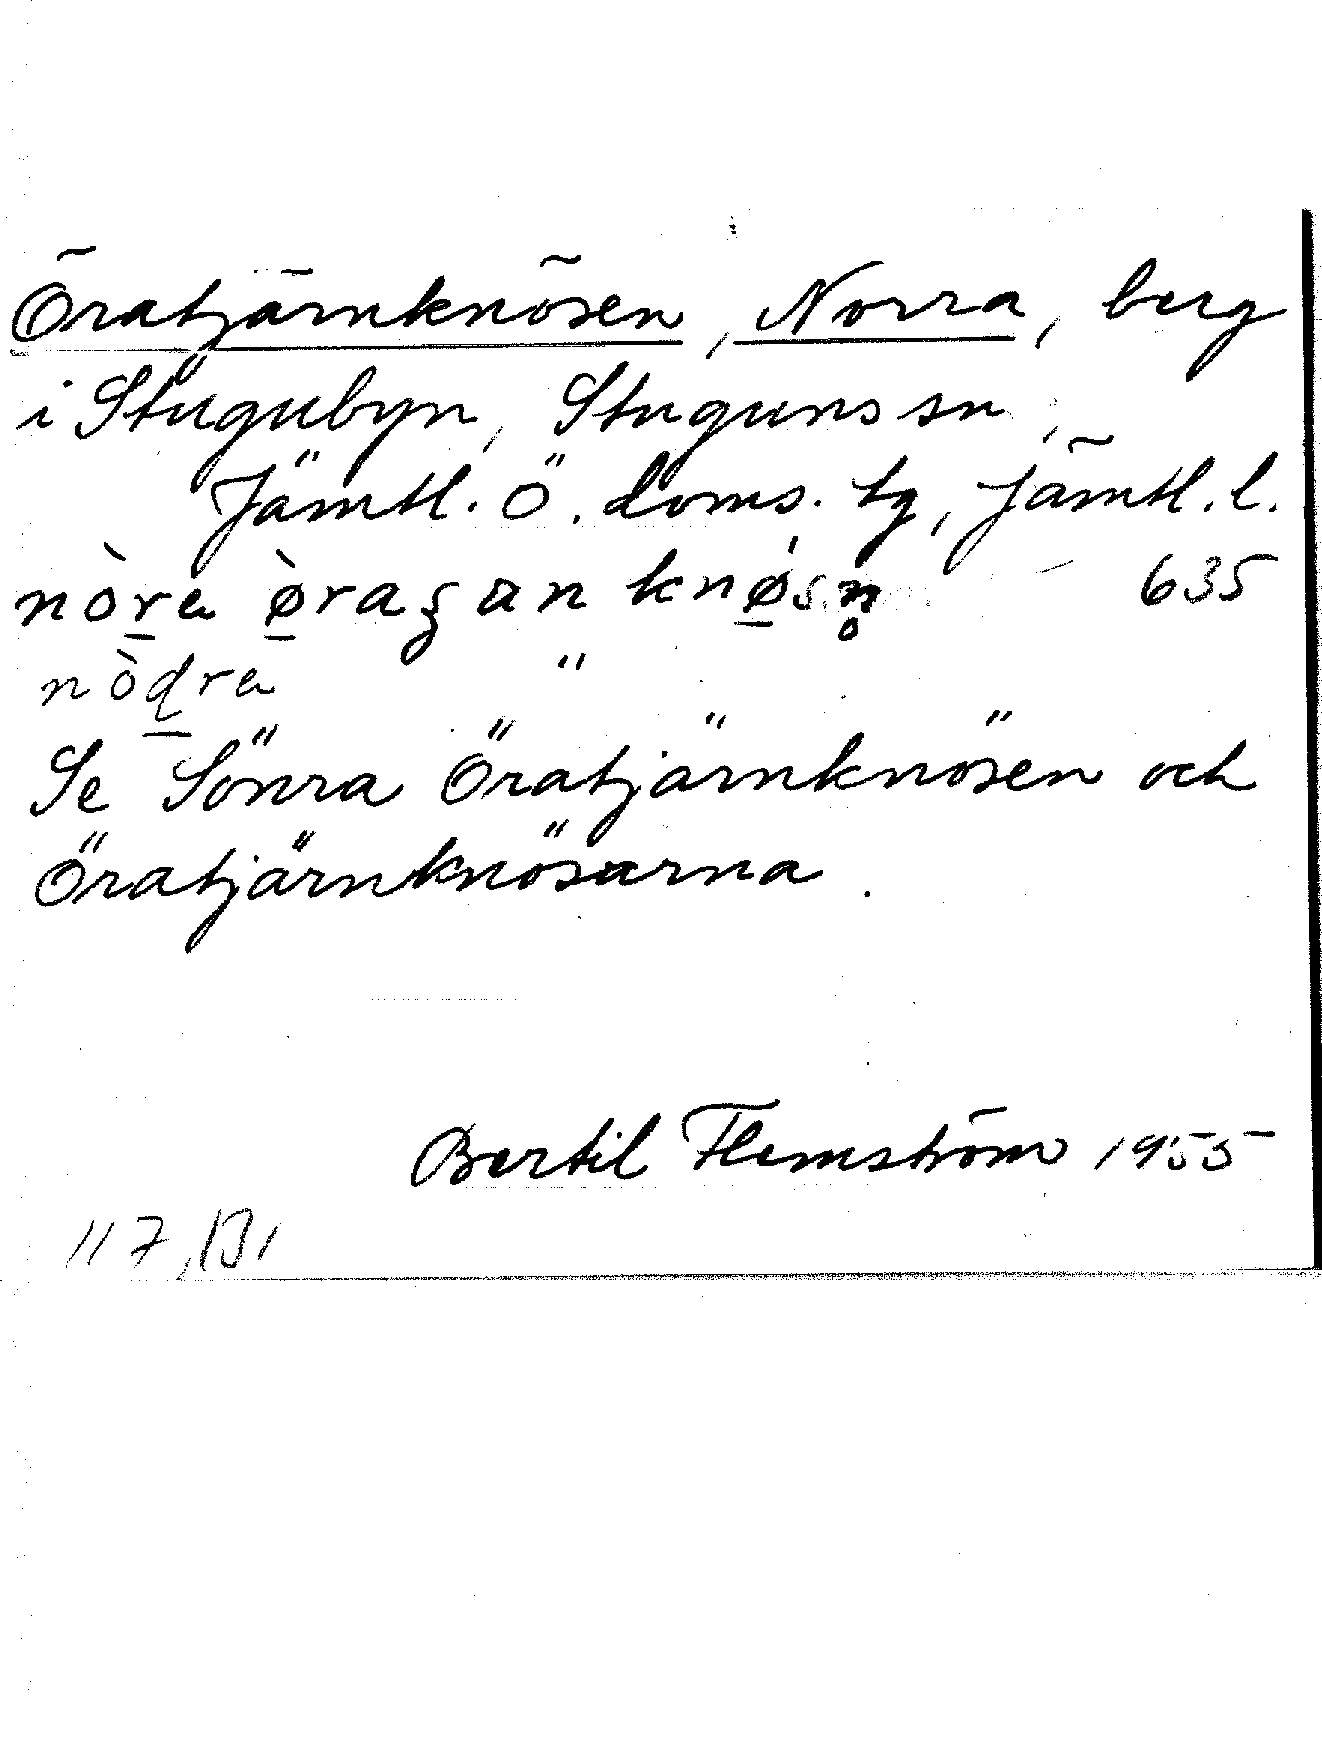 Öratjärnknösen, Norra, berg
i Stugubyn, Stuguns sn,
Jämtl. Ö. doms. tg, Jämtl. l.
nòr̲a ø̲̀raʂan knǿ̲sn̥ 635
nòd̲ra "
Se Sönra Öratjärnknösen och
Öratjärnknösarna.
Bertil Flemström 1955
117,